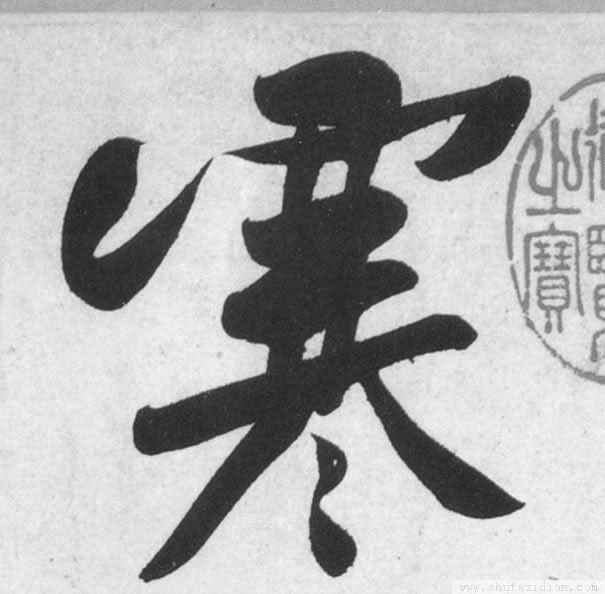 寒
之寶
www.shufazidian.com